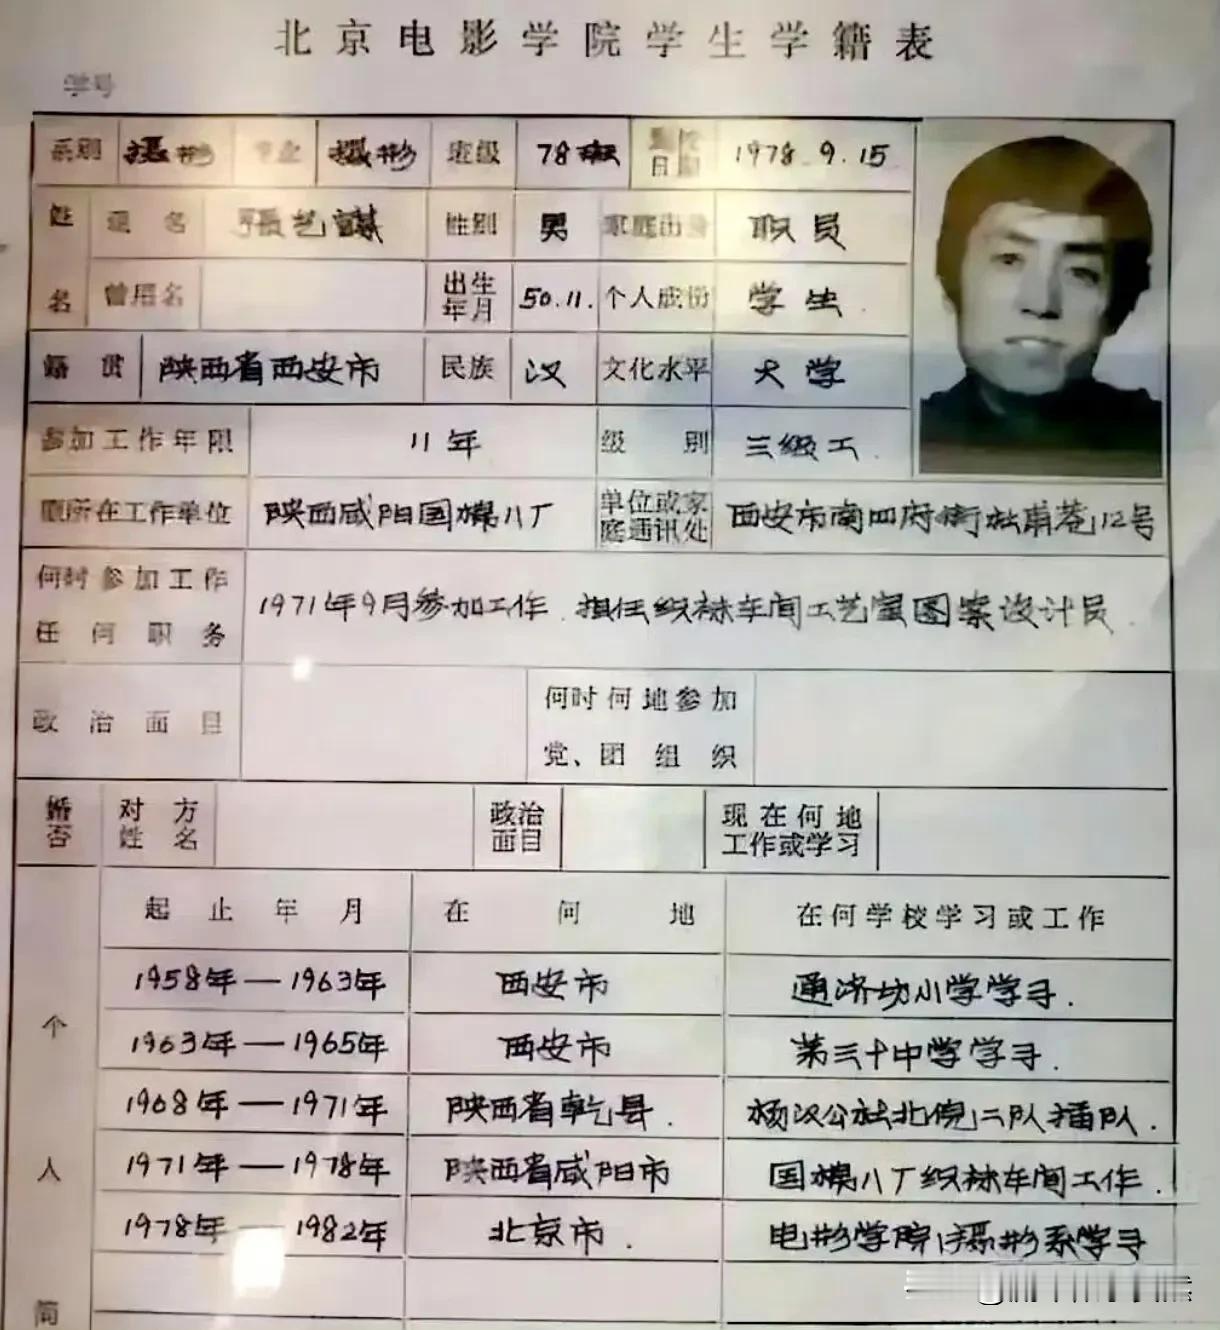 北京电影学院学生学籍表
学号
系别 摄影 专业 摄影 班级 78班 日期 1978.9.15
姓名 名 張艺謀 性别 男 家庭出身 职员
曾用名 出生年月 50.11. 个人成份 学生.
籍贯 陕西省西安市 民族 汉 文化水平 大学
参加工作年限 11年 级别 三级工.
原所在工作单位 陕西咸阳国棉八厂 单位或家庭通讯处 西安市南四府街杜甫巷12号
何时参加工作任何职务 1971年9月参加工作.担任织袜车间工艺室图案设计员.
政治面目 何时何地参加党、团组织
婚否 对方姓名 政治面目 现在何地工作或学习
个人简
起止年月 在何地 在何学校学习或工作
1958年—1963年 西安市 通济坊小学学习.
1963年—1965年 西安市 第三十中学学习.
1968年—1971年 陕西省乾县. 杨汉公社北倪二队插队.
1971年—1978年 陕西省咸阳市 国棉八厂织袜车间工作.
1978年—1982年 北京市. 电影学院摄影系学习